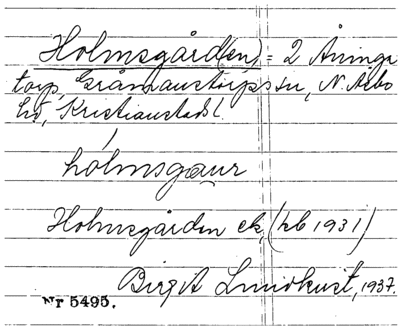 Holmsgård(en) = 2 Åninga
torp Gråmanstorps sn, N. Åsbo
hd, Kristianstads l.
hólmsgaur
Holmsgården ek, (hb 1931)
Birgit Lundkvist, 1937.
Nr 5495.